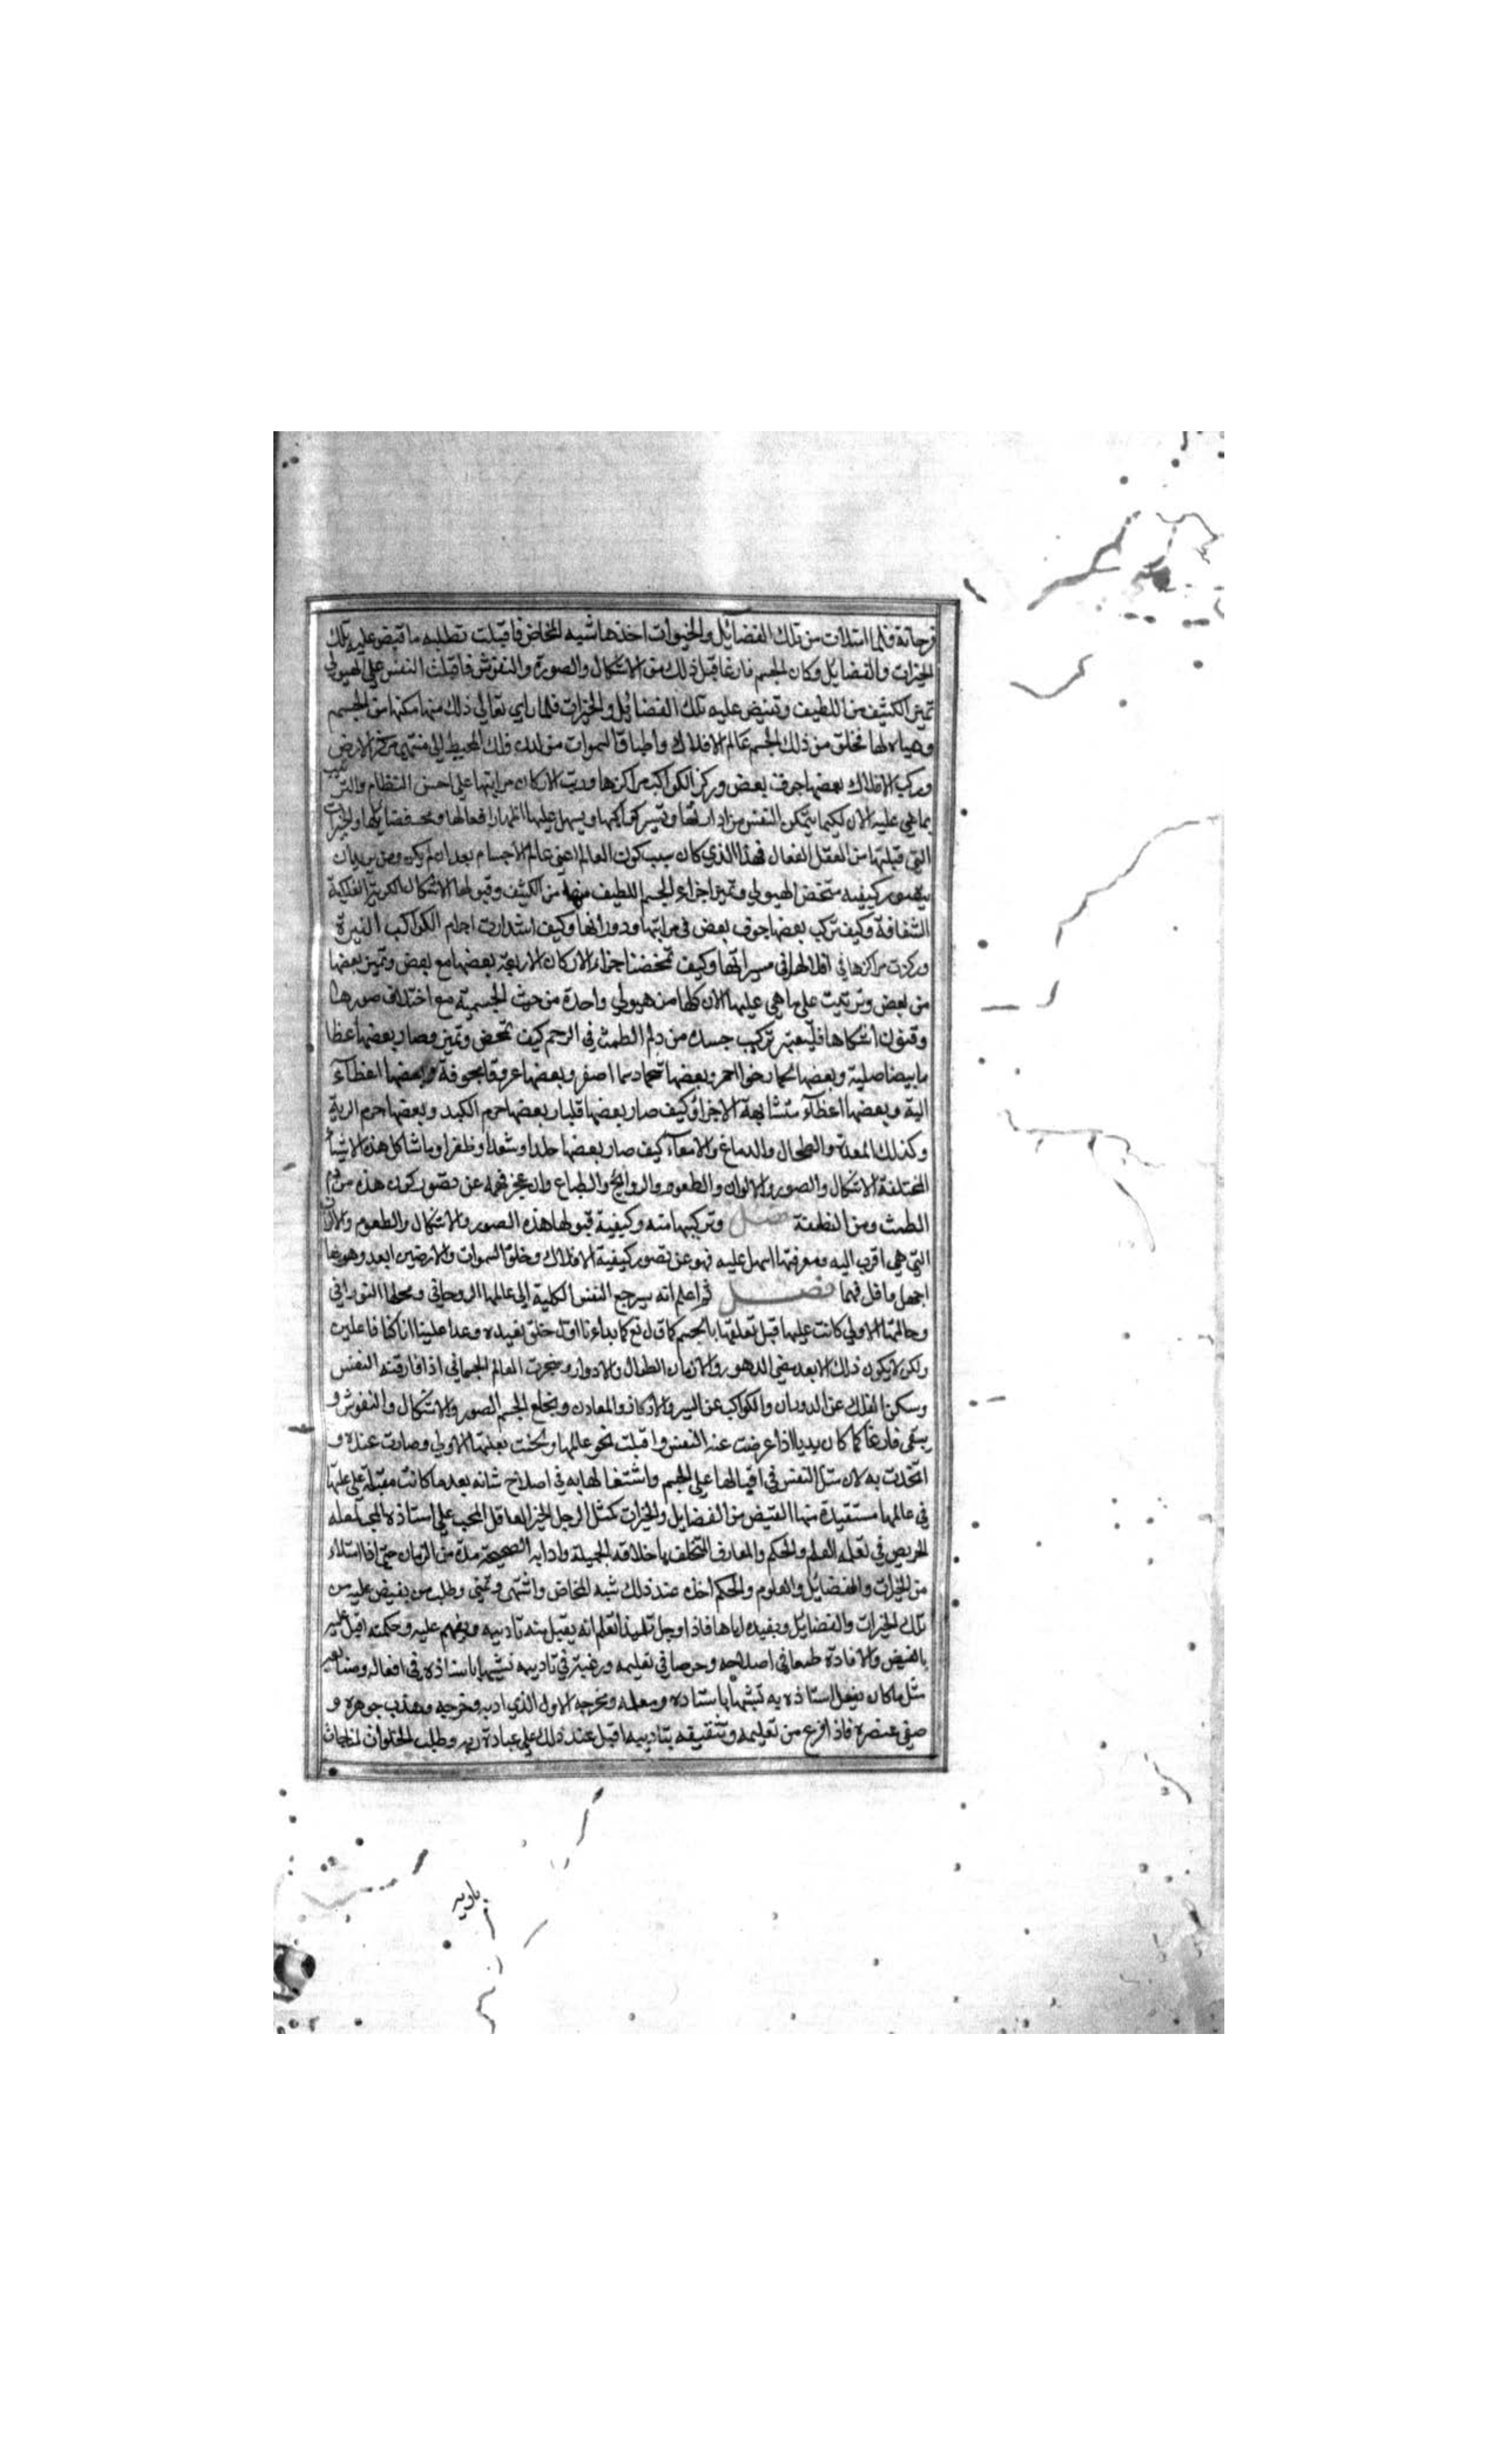 فرحانة فلما امتلات من تلك الفضائل والخيرات اخذها شبه المخاض فاقبلت تطلب ما تفيض عليه تلك
الخيرات والفضايل وكان الجسم فارغا قبل ذلك من الاشكال والصورة والنقوش فاقبلت النفس على الهيولى
تميز الكثيف من اللطيف وتفيض عليه تلك الفضائل والخيرات فلما راى تعالى ذلك منها مكنها من الجسم
وهياه لها فخلق من ذلك الجسم عالم الافلاك واطباق السموات من لدن فلك المحيط الى منتهى مركز الارض
وركب الافلاك بعضها جوف بعض وركز الكواكب مراكزها ورتب الاركان مراتبها على احسن النظام والترتيب
بما هي عليه الان لكيما يتمكن النفس من ادارتها وتسير كواكبها ويسهل عليها اظهار افعالها وفضايلها والخيرات
التي قبلتها من العقل الفعال فهذا الذي كان سبب كون العالم اعني عالم الاجسام بعد ان لم يكن ومن يريد ان
يتصور كيفيه تمخض الهيولى وتميز اجزاء الجسم اللطيف منها من الكثيف وقبولها الاشكال الكرية الفلكية
الشفافة وكيف تركب بعضها جوف بعض في مراتبها ودورانها وكيف استدارت اجرام الكواكب النيرة
وركزت مراكزها في افلاكها في مسيراتها وكيف تمخضت اجزاء الاركان الاربعة بعضها مع بعض وتميز بعضها
من بعض وترتبت على ما هي عليها الان كلها من هيولى واحدة من حيث الجسمية مع اختلاف صورها
وفنون اشكالها فليعتبر تركيب جسده من دم الطمث في الرحم كيف تمخض وتميز وصار بعضها عظا
ما بيضا صلبة وبعضها لحما رخوا احمر وبعضها شحما دسما اصفر وبعضها عروقا مجوفة وبعضها اعظآء
الية وبعضها اعظآء متشابهة الاجزاء وكيف صار بعضها قلبا وبعضها جرم الكبد وبعضها جرم الرية
وكذلك المعدة والطحال والدماغ والامعآء كيف صار بعضها جلدا وشعرا وظفرا وما شاكل هذه الاشيآء
المختلفة الاشكال والصور والالوان والطعوم والروائح والطباع وان عجز فهمه عن تصور كون هذه من دم
الطمث ومن النطفة فصل وتركيبها منه وكيفية قبولها هذه الصور والاشكال والطعوم والالوان
التي هي اقرب اليه ومعرفتها اسهل عليه فهو عن تصور كيفية الافلاك وخلق السموات والارضين ابعد وهو بها
اجهل واقل فهما فصل ثم اعلم انه سيرجع النفس الكلية الى عالمها الروحاني ومحلها النوراني
وحالتها الاولى كانت عليها قبل تعلقها بالجسم كما قال تع كما بداءنا اول خلق نعيده وعدا علينا انا كنا فاعلين
ولكن لا يكون ذلك الا بعد مضي الدهور والازمان الطوال والادوار وخربت العالم الجسماني اذا فارقته النفس
وسكن الفلك عن الدوران والكواكب عن السير والاركان والمعادن ويخلع الجسم الصور والاشكال والنقوش و
يبقى فارغا كما كان بديا اذا عرضت عنه النفس واقبلت نحو عالمها ولحقت بعلتها الاولى وصارت عنده و
اتحدت به لان مثل النفس في اقبالها على الجسم واشتغالها به في اصلاح شانه بعد ما كانت مقبلة على علتها
في عالمها مستفيدة منها الفيض من الفضايل والخيرات كمثل الرجل الخير العاقل المحب على استاذه المحب لمعلمه
الحريص في تعلمه العلم والحكم والمعارف التخلق باخلاقه الجميلة وادابه الصحيحة مدة من الزمان حتى اذا امتلاء
من الخيرات والفضايل والعلوم والحكم اخذه عند ذلك شبه المخاض واشتهى وتمنى وطلب من يفيض عليه من
تلك الخيرات والفضايل ويفيده اياها فاذا وجد تلميذا تعلم انه يقبل منه تاديبه ويفهم عليه وحكمته اقبل عليه
بالفيض والافادة طمعا في اصلاحه وحرصا في تعليمه ورغبة في تاديبه تشبها باستاذه في افعاله وصنايعه
مثل ما كان يفعل استاذه به تشبها باستاذه ومعلمه ومخرجه الاول الذي ادبه وخرجه وهذب جوهره و
صفى عنصره فاذا فرغ من تعليمه وتثقيفه بتاديبه اقبل عند ذلك على عبادة ربه وطلب الخلوات لمناجات
باديه